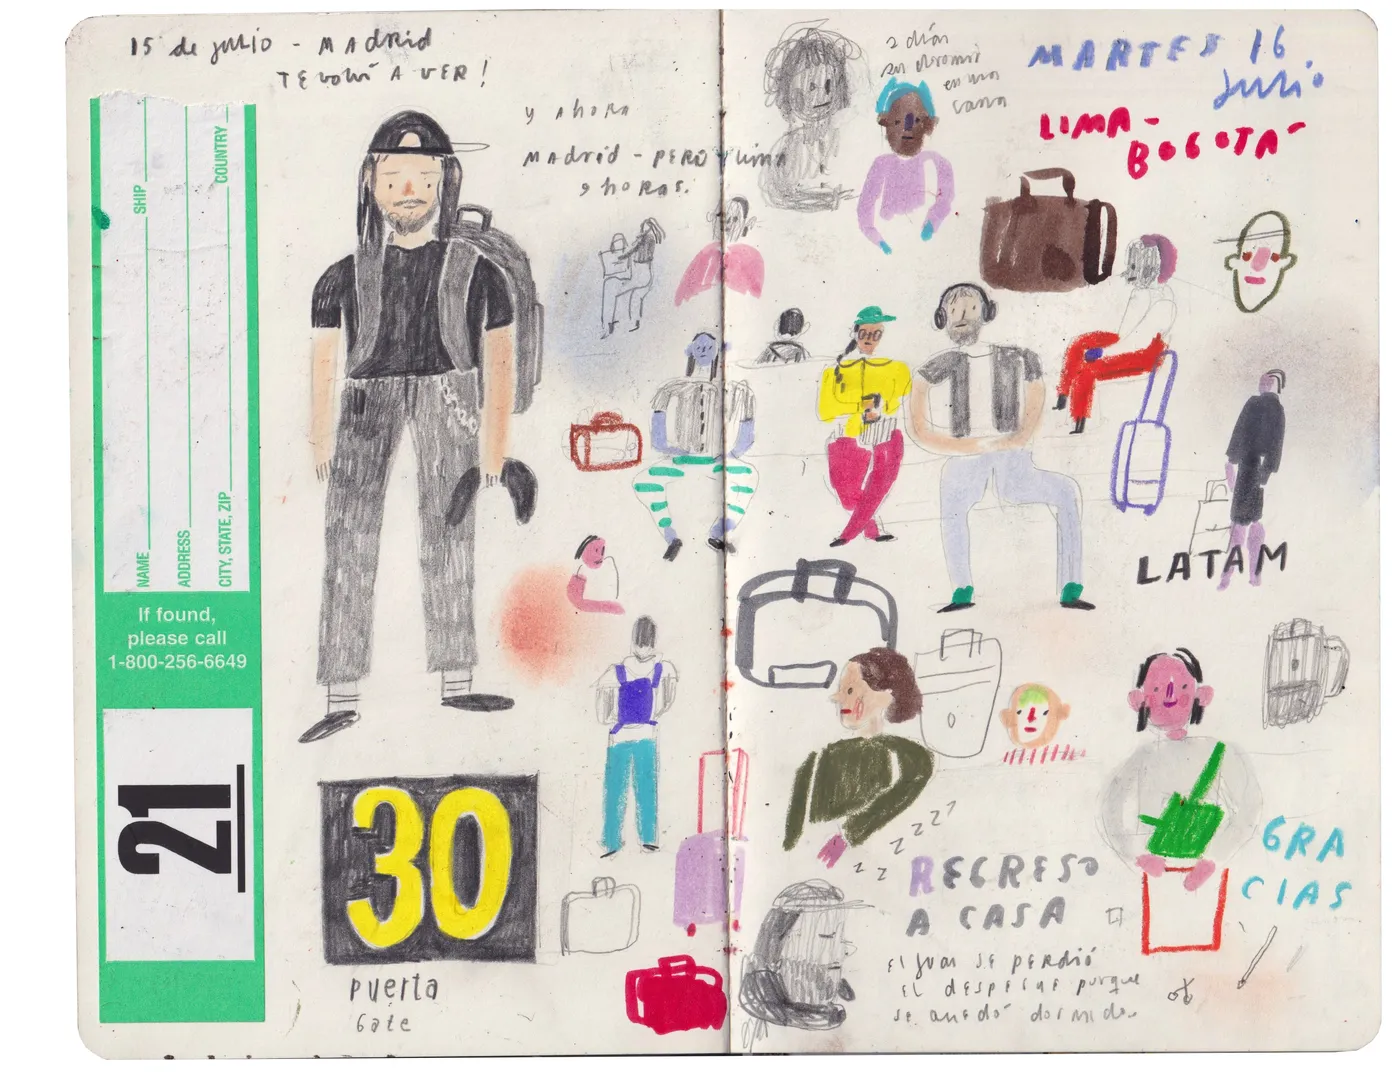 15 de julio - MAdrid
TE volví A VER!
y Ahora
MAdrid - PERO LIMA
9 horas.
NAME
SHIP
ADDRESS
CITY, STATE, ZIP
COUNTRY
If found,
please call
1-800-256-6649
21
30
puerta
Gate
2 días
sin dormir
en una
cama
MARTES 16
Julio
LIMA-
BOGOTÁ
LATAM
z z z z z z
REGRESO
A CASA
El Juan SE PERDIÓ
EL DESPEGUE porque
se quedó dormido.
GRA
CIAS